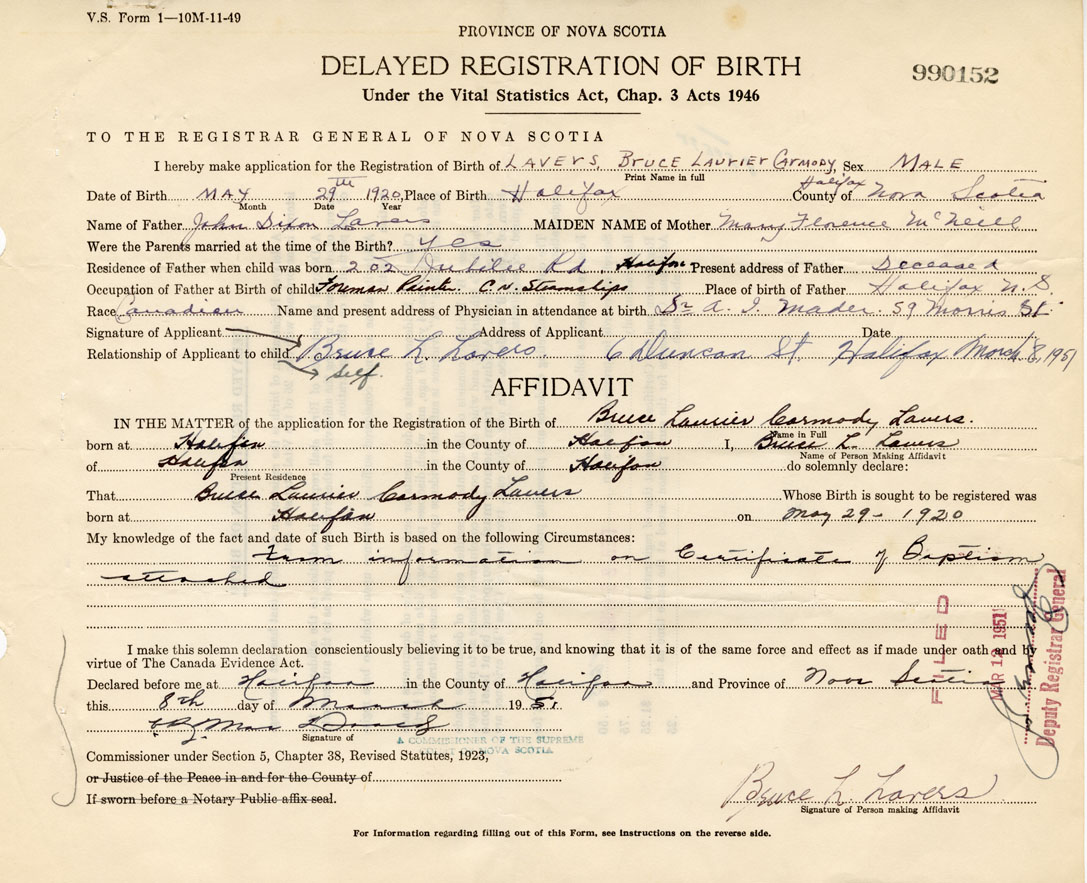 V.S. Form 1—10M-11-49
PROVINCE OF NOVA SCOTIA
DELAYED REGISTRATION OF BIRTH
990152
Under the Vital Statistics Act, Chap. 3 Acts 1946
TO THE REGISTRAR GENERAL OF NOVA SCOTIA
I hereby make application for the Registration of Birth of LAVERS, BRUCE LAURIER CARMODY, Sex MALE
Print Name in full
Date of Birth MAY 29th 1920, Place of Birth Halifax County of Halifax Nova Scotia
Month Date Year
Name of Father John Dixon Lavers MAIDEN NAME of Mother Mary Florence McNeill
Were the Parents married at the time of the Birth? yes
Residence of Father when child was born 202 Jubilee Rd, Halifax Present address of Father Deceased
Occupation of Father at Birth of child Foreman Painter C.N. Steamships Place of birth of Father Halifax N.S.
Race Canadian Name and present address of Physician in attendance at birth Dr A. I. Mader. 59 Morris St.
Signature of Applicant Address of Applicant Date
Relationship of Applicant to child Bruce L. Lavers. 6 Duncan St. Halifax March 8, 1951
self.
AFFIDAVIT
IN THE MATTER of the application for the Registration of Birth of Bruce Laurier Carmody Lavers.
Name in Full
born at Halifax in the County of Halifax I, Bruce L. Lavers
Name of Person Making Affidavit
of Halifax in the County of Halifax do solemnly declare:
Present Residence
That Bruce Laurier Carmody Lavers Whose Birth is sought to be registered was
born at Halifax on May 29 - 1920
My knowledge of the fact and date of such Birth is based on the following Circumstances:
From information on Certificate of Baptism
attached
FILED
MAR 12 1951
Deputy Registrar General
I make this solemn declaration conscientiously believing it to be true, and knowing that it is of the same force and effect as if made under oath and by
virtue of The Canada Evidence Act.
Declared before me at Halifax in the County of Halifax and Province of Nova Scotia
this 8th day of March 1951.
Signature of
A COMMISSIONER OF THE SUPREME
COURT OF NOVA SCOTIA
Commissioner under Section 5, Chapter 38, Revised Statutes, 1923,
or Justice of the Peace in and for the County of
If sworn before a Notary Public affix seal.
Bruce L. Lavers
Signature of Person making Affidavit
For Information regarding filling out of this Form, see instructions on the reverse side.